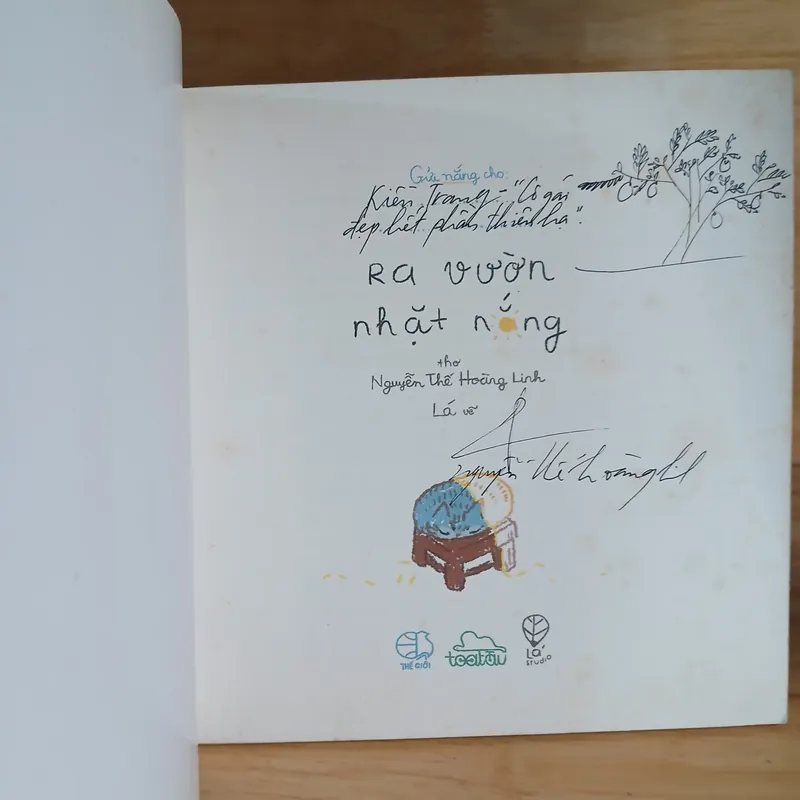 Gửi nắng cho:
Kiều Trang - "Cô gái
đẹp hết phần thiên hạ".
RA VƯỜN
nhặt nắng
thơ
Nguyễn Thế Hoàng Linh
Lá vẽ
Nguyễn Thế Hoàng Linh
THẾ GIỚI
toa tàu
Lá
STUDIO